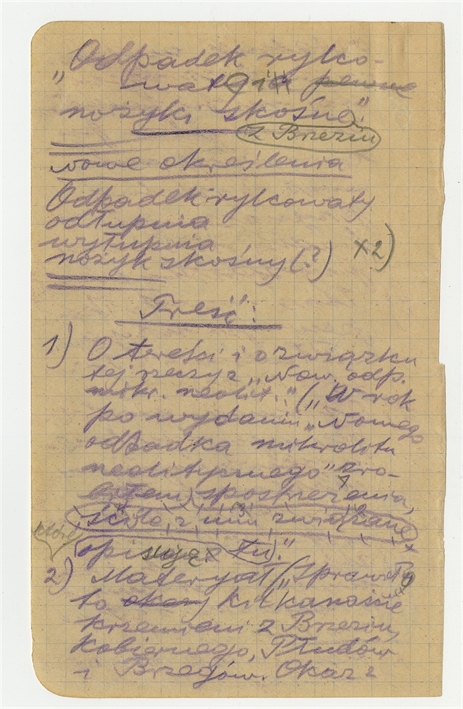 „Odpadek rylco-
waty i pewne
nożyki skośne".
z Brzezin
Nowe określenia
Odpadek rylcowaty
odłupnia
wyłupnia
nożyk skośny (?) x2)
Treść:
1) O treści i o związku
tej rzeczy z „Now. odp.
mikr. neolit." („W rok
po wydaniu „Nowego
odpadka mikrolitu
neolitycznego" zro-
biłem spostrzeżenia,
ściśle z nim związane,
które
opisuję tu)."
2) Materyał („Sprawiło
to okazy kilkanaście
krzemieni z Brzezin,
Kobiernego, Płudów
i Brzegów. Okaz z